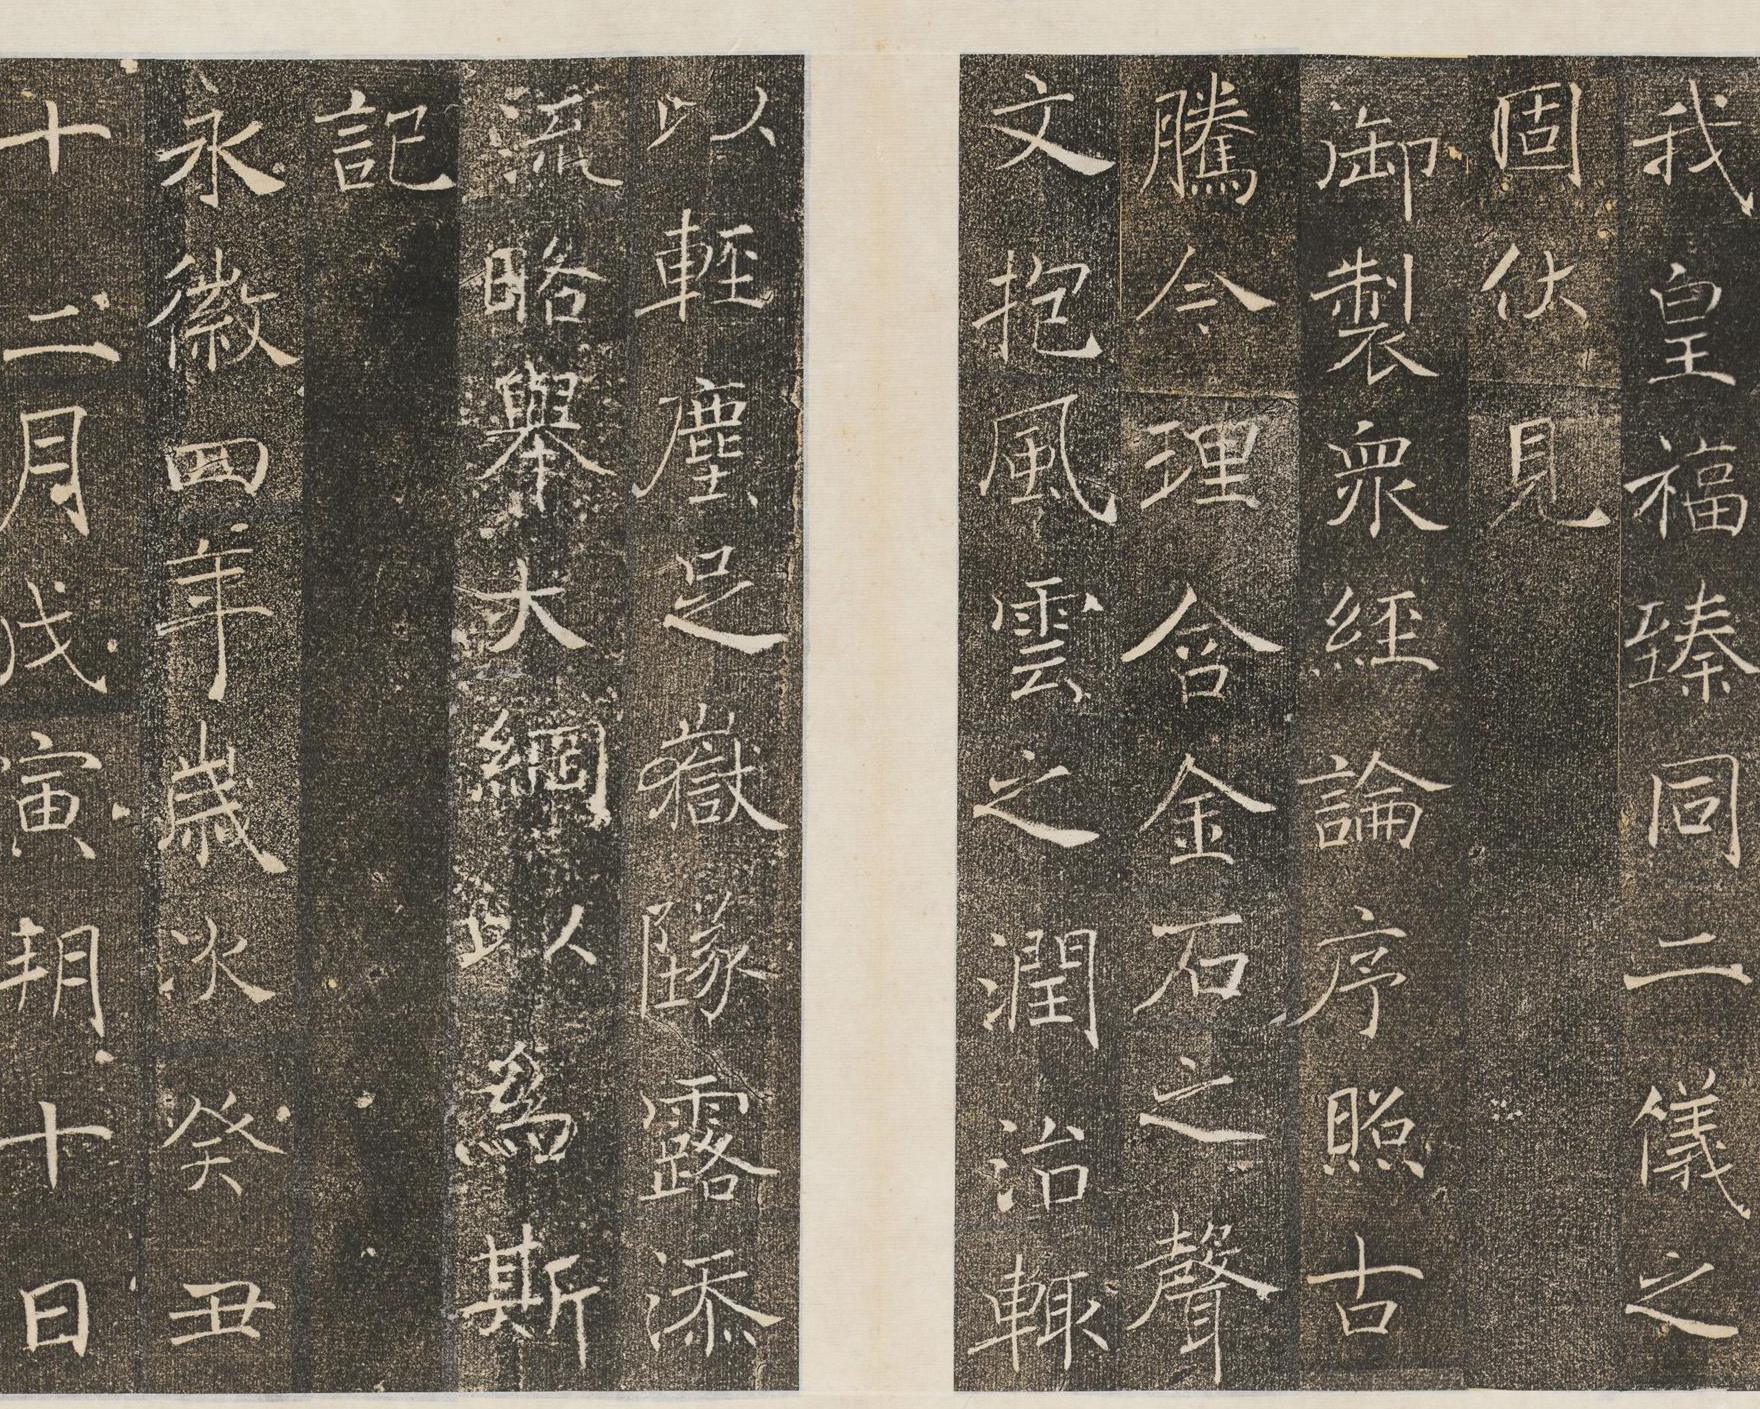 我皇福臻同二儀之
固伏見
御製眾經論序照古
騰今理含金石之聲
文抱風雲之潤治輒
以輕塵足嶽墜露添
流略舉大綱以為斯
記
永徽四年歲次癸丑
十二月戊寅朔十日